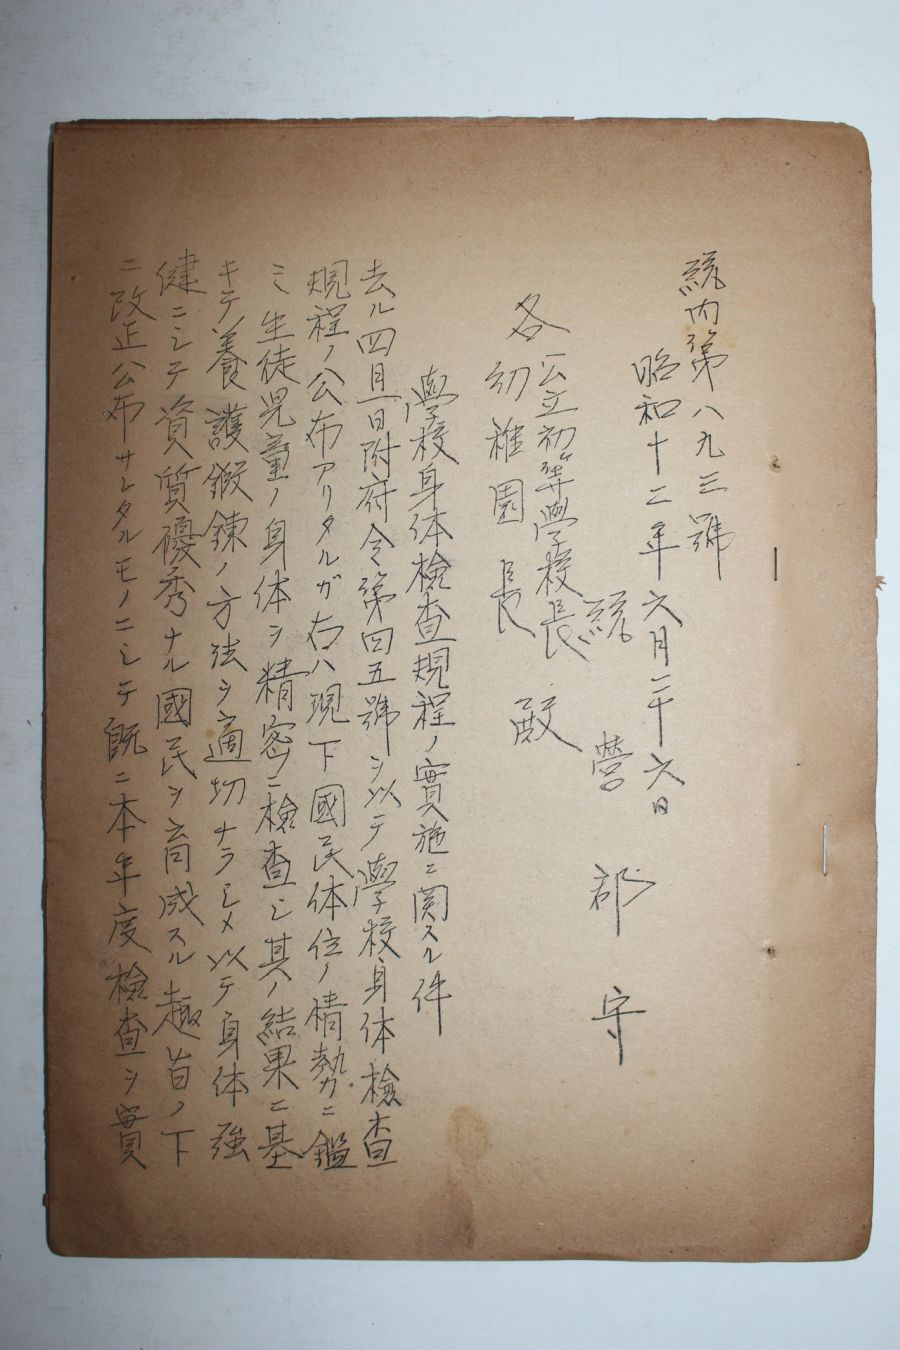 統内第八九三號
昭和十二年六月二十六日
統營郡守
各公立初等學校長
各幼稚園長 殿
學校身体檢查規程ノ實施ニ関スル件
去ル四月一日附府令第四五號ヲ以テ學校身体檢查
規程ノ公布アリタルガ右ハ現下國民体位ノ情勢ニ鑑
ミ生徒児童ノ身体ヲ精密ニ檢查シ其ノ結果ニ基
キテ養護鍛錬ノ方法ヲ適切ナラシメ以テ身体強
健ニシテ資質優秀ナル國民ヲ育成スル趣旨ノ下
ニ改正公布サレタルモノニシテ既ニ本年度檢查ヲ實